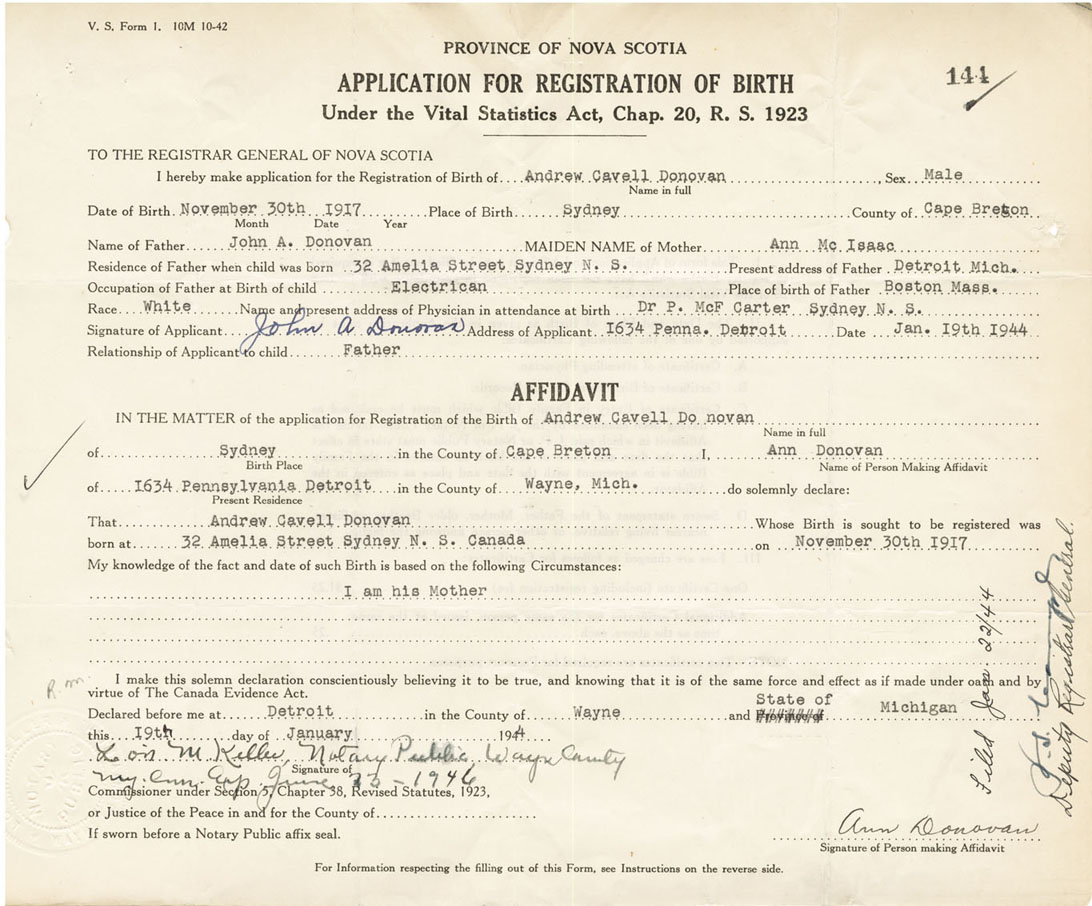 V. S. Form 1. 10M 10-42
PROVINCE OF NOVA SCOTIA
144
APPLICATION FOR REGISTRATION OF BIRTH
Under the Vital Statistics Act, Chap. 20, R. S. 1923
TO THE REGISTRAR GENERAL OF NOVA SCOTIA
I hereby make application for the Registration of Birth of....Andrew Cavell Donovan......, Sex Male
Name in full
Date of Birth November 30th I9I7 Place of Birth Sydney County of Cape Breton
Month Date Year
Name of Father John A. Donovan MAIDEN NAME of Mother Ann Mc Isaac
Residence of Father when child was born 32 Amelia Street Sydney N. S. Present address of Father Detroit Mich.
Occupation of Father at Birth of child Electrican Place of birth of Father Boston Mass.
Race White Name and present address of Physician in attendance at birth Dr P. McF Carter Sydney N. S.
Signature of Applicant John A Donovan Address of Applicant I634 Penna. Detroit Date Jan. I9th I944
Relationship of Applicant to child Father
AFFIDAVIT
IN THE MATTER of the application for Registration of the Birth of Andrew Cavell Do novan
Name in full
of Sydney in the County of Cape Breton I, Ann Donovan
Birth Place Name of Person Making Affidavit
of I634 Pennsylvania Detroit in the County of Wayne, Mich. do solemnly declare:
Present Residence
That Andrew Cavell Donovan Whose Birth is sought to be registered was
born at 32 Amelia Street Sydney N. S. Canada on November 30th I9I7
My knowledge of the fact and date of such Birth is based on the following Circumstances:
I am his Mother
I make this solemn declaration conscientiously believing it to be true, and knowing that it is of the same force and effect as if made under oath and by
virtue of The Canada Evidence Act.
State of
Declared before me at Detroit in the County of Wayne and Province of Michigan
this I9th day of January 1944
Lois M Keller, Notary Public Wayne County
Signature of
My Com. Exp June 23-1946
Commissioner under Section 5, Chapter 38, Revised Statutes, 1923,
or Justice of the Peace in and for the County of
If sworn before a Notary Public affix seal.
Ann Donovan
Signature of Person making Affidavit
For Information respecting the filling out of this Form, see Instructions on the reverse side.
Filed Jan 22/44
Deputy Registrar General.